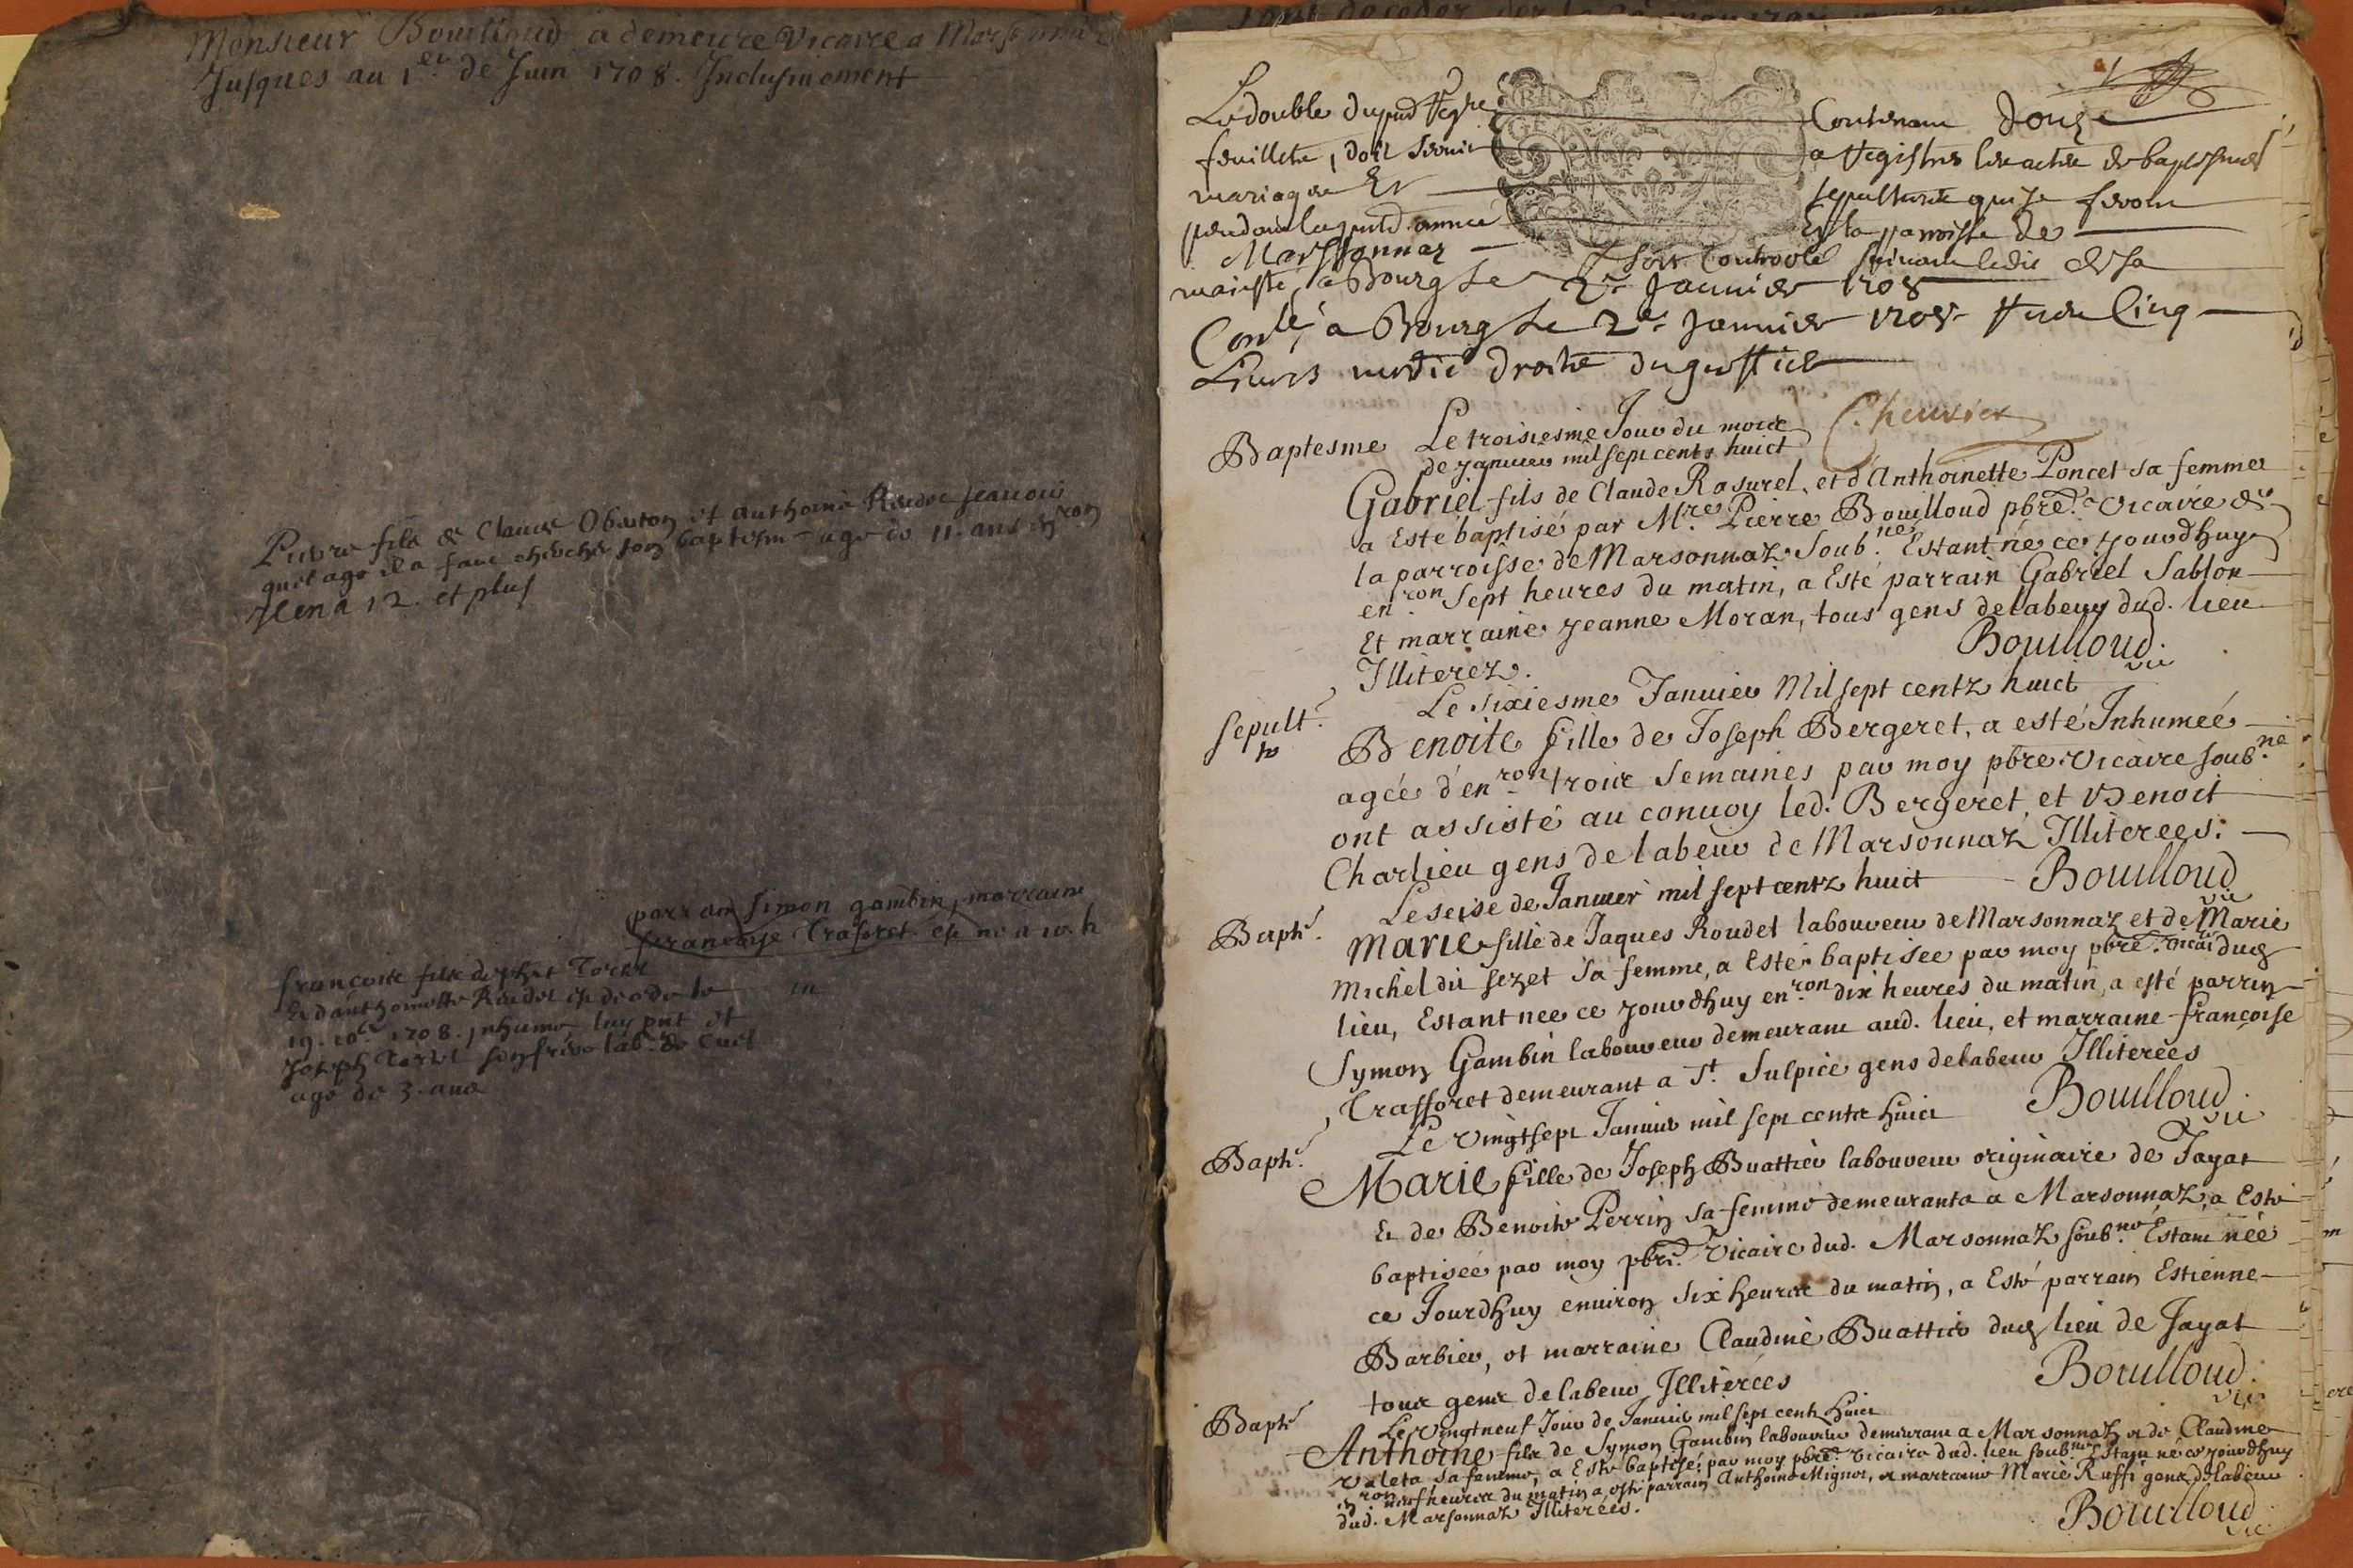 Monsieur Bouilloud a demeure Vicaire a Marsonnaz
Jusques au 1er de Juin 1708. Inclusiuement
Pierre fils de Claude et
quel age il a faut chercher son baptesme age de 11. ans enron
Il en a 12. et plus
parrain Simon gambin, marraine
francoise Trasoret
francoise fille de
Et danthoinette Rendet
19. 10bre 1708. Inhumé luy pnt et
Joseph son frère lab. de Cuet
age de 3. ans
Le double du pnt Regre Contenans douze
feuillets, doit seruir a Registrer les actes de baptesmes
mariages Et sepultures qui se feront
pendant la pnte année En la parroisse de
Marssonnaz soit Controolé suiuant ledit de sa
maiesté, a Bourg Le 2e Januier 1708
Conlé, a Bourg Le 2e Januier 1708 Reçu Cinq
Liures droits du greffier
Cheurier
Baptesme Le troisiesme Jour du mois
de januier mil sept cents huict
Gabriel fils de Claude Rosurel, et d'Anthoinette Poncet sa femme
a Esté baptisé par Mre Pierre Bouilloud pbre. Vicaire de
la parroisse de Marsonnaz Soub.né Estant né ce jourdhuy
en.ron Sept heures du matin, a Esté parrain Gabriel Sablon
Et marraine Jeanne Moran, tous gens de labeur dud. lieu
Illiterez.
Bouilloud. vic
Le sixiesme Januier Mil sept centz huict
sepult.re
Benoite fille de Joseph Bergeret, a esté Inhumeé
agée d'en.ron trois semaines par moy pbre. Vicaire soub.né
ont assisté au conuoy led. Bergeret, et Benoit
Charlieu gens de labeur de Marsonnaz Illiterees.
Bouilloud vic
Le seise de Januier mil sept centz huict
Bapt.
Marie fille de Jaques Roudet laboureur de Marsonnaz et de Marie
Michel du sezet sa femme, a Esté baptisée par moy pbre. vicaire dud
lieu, Estant nee ce jourdhuy en.ron dix heures du matin, a esté parrin
Symon Gambin laboureur demeurant aud. lieu, et marraine françoise
Trassoret demeurant a St. Sulpice gens de labeur Illiterées
Bouilloud. vic
Le Vingtsept Januier mil sept cents huict
Bapt.
Marie fille de Joseph Buattier laboureur originaire de Jayat
Et de Benoite Perrin sa femme demeurants a Marsonnaz, a Esté
baptisée par moy pbre. Vicaire dud. Marsonnaz soub.né Estant née
ce Jourdhuy enuiron six heures du matin, a Esté parrain Estienne
Barbier, et marraine Claudine Buattier dud lieu de Jayat
tous gens de labeur Illiterées
Bouilloud. vic
Le Vingtneuf Jour de Januier mil sept cents huict
Bapt.
Anthoine fils de Symon Gambin laboureur demeurant a Marsonnaz et de Claudine
Valeta sa femme, a Esté baptisé par moy pbre. Vicaire dud. lieu soub.né Estant né ce jourdhuy
en.ron neuf heures du matin a esté parrain Anthoine Mignot, et marraine Marie Ruffi gens de labeur
dud. Marsonnaz Illiterées.
Bouilloud vic